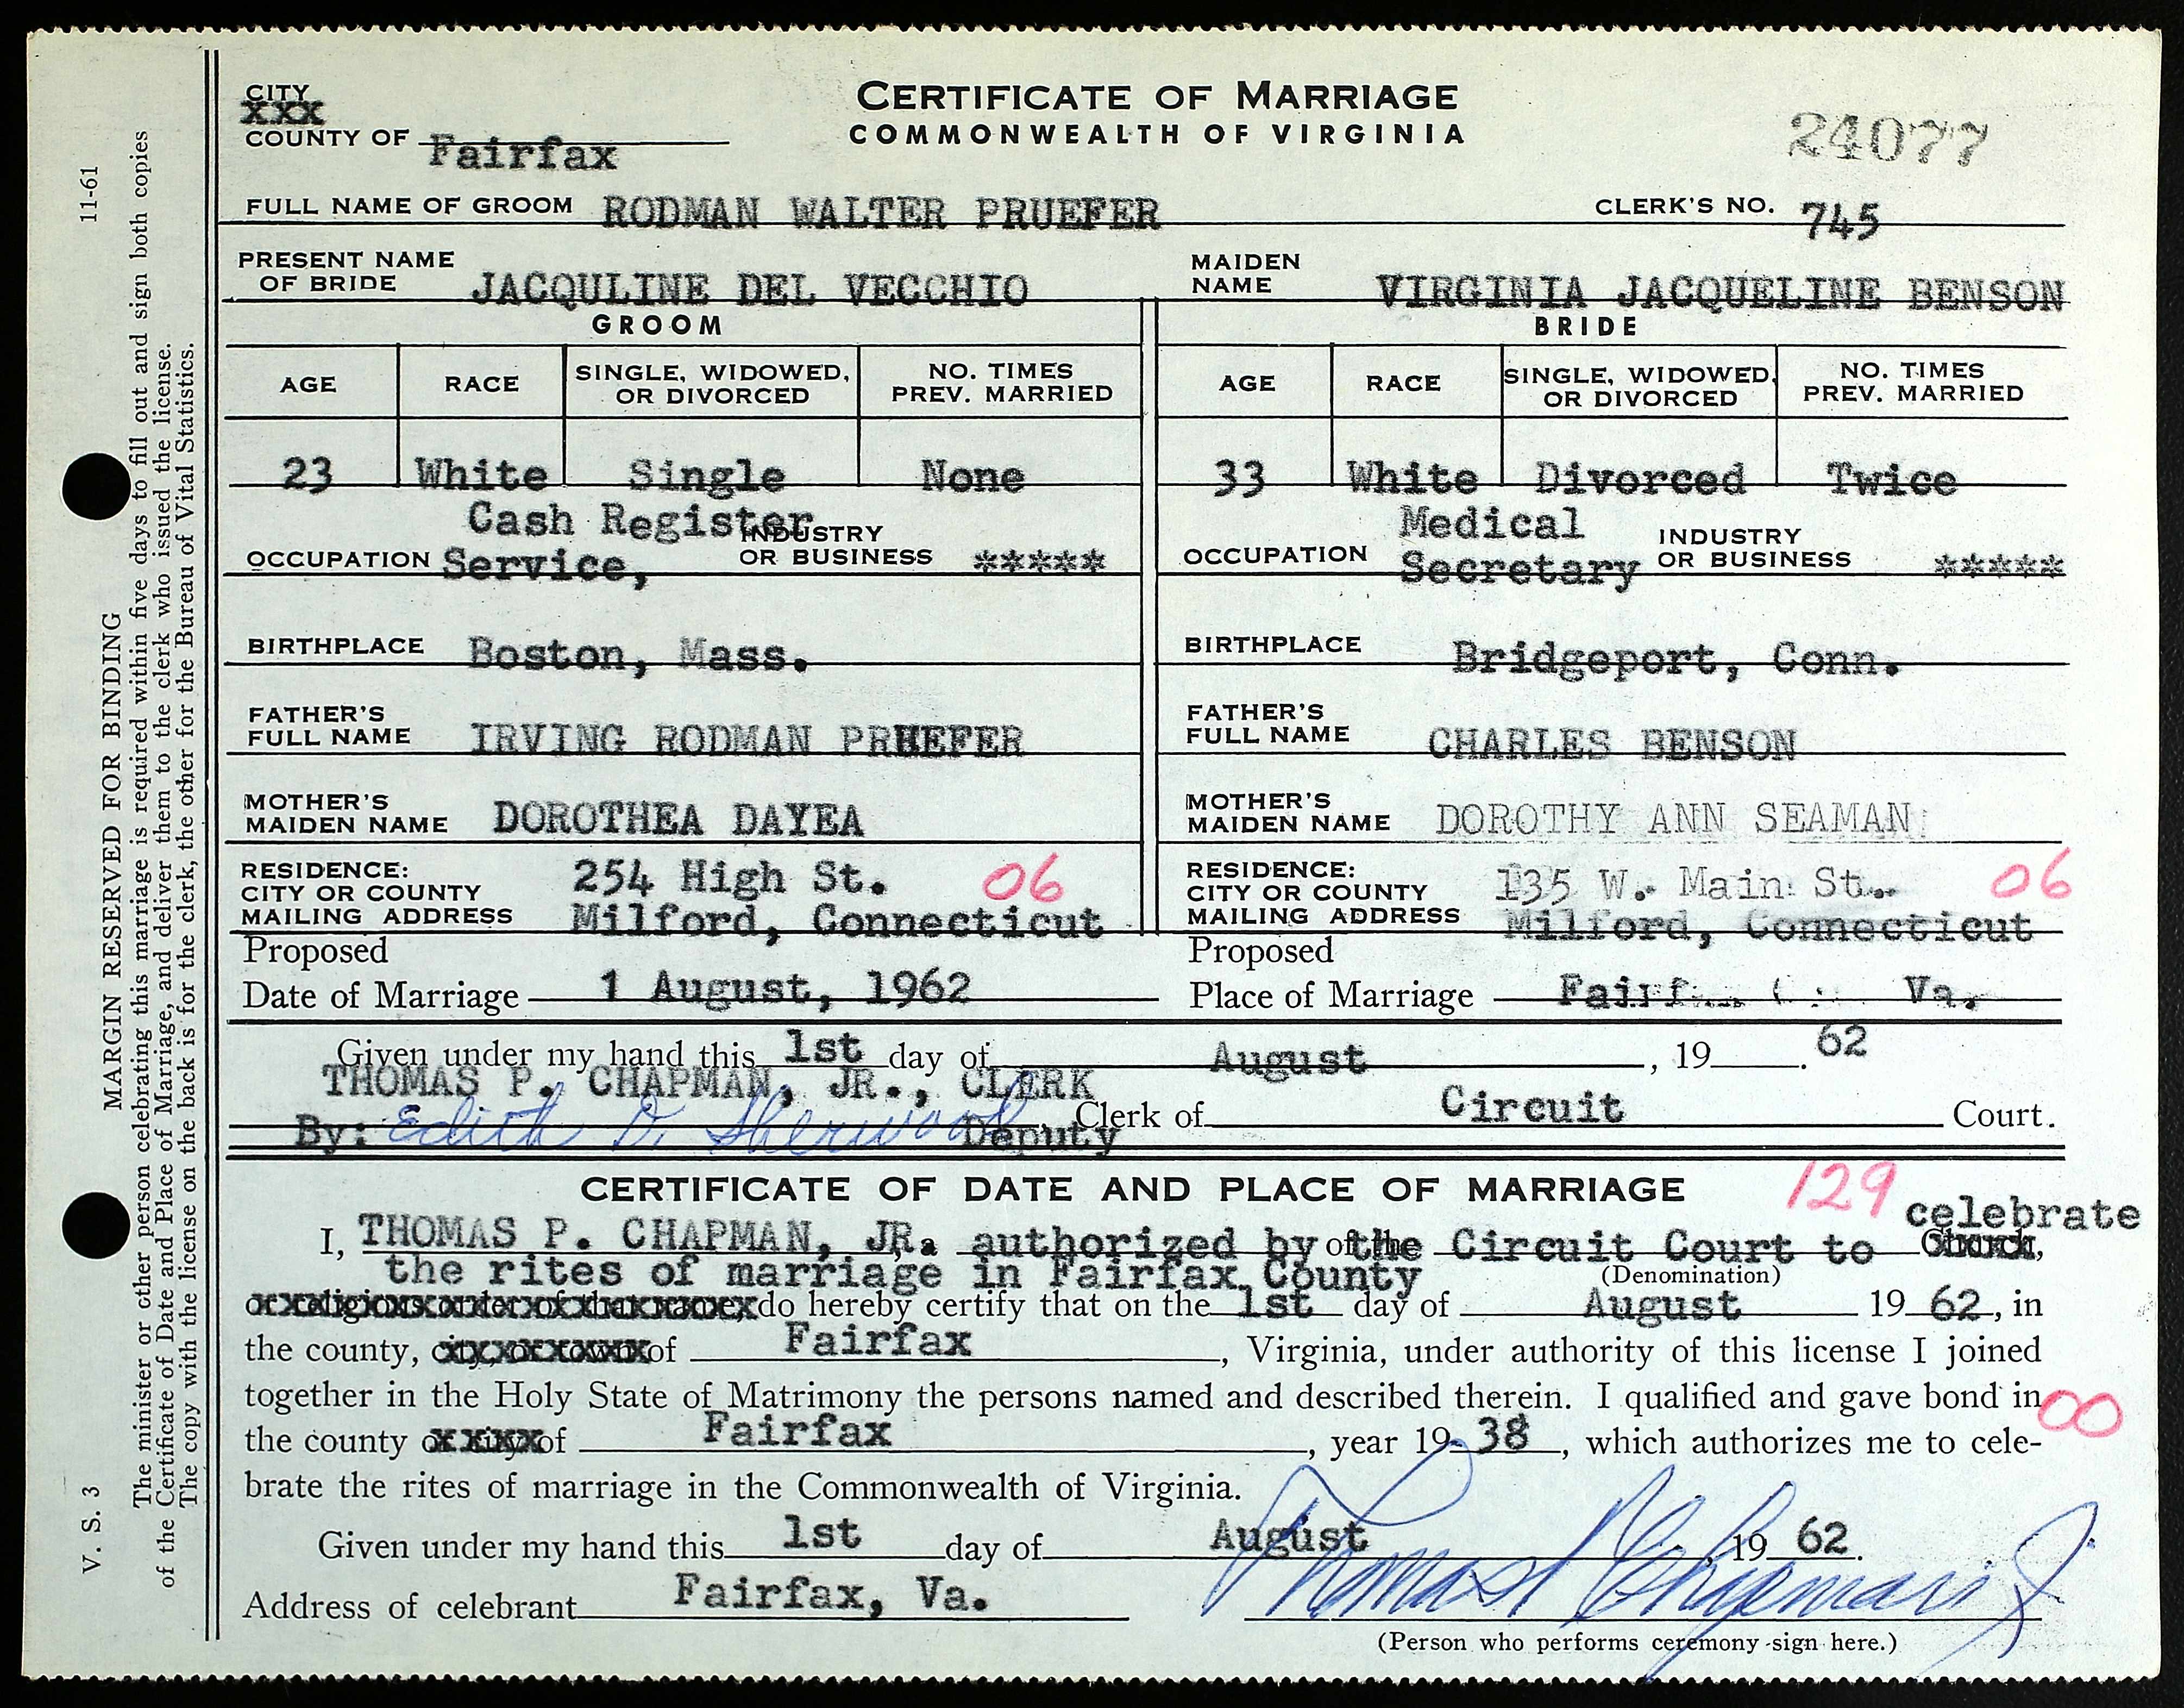 CITY
XXX
COUNTY OF Fairfax
CERTIFICATE OF MARRIAGE
COMMONWEALTH OF VIRGINIA
24077
FULL NAME OF GROOM RODMAN WALTER PRUEFER CLERK'S NO. 745
PRESENT NAME OF BRIDE JACQULINE DEL VECCHIO MAIDEN NAME VIRGINIA JACQUELINE BENSON
GROOM BRIDE
AGE RACE SINGLE, WIDOWED, OR DIVORCED NO. TIMES PREV. MARRIED AGE RACE SINGLE, WIDOWED, OR DIVORCED NO. TIMES PREV. MARRIED
23 White Single None 33 White Divorced Twice
OCCUPATION Cash Register Service, INDUSTRY OR BUSINESS ***** OCCUPATION Medical Secretary INDUSTRY OR BUSINESS *****
BIRTHPLACE Boston, Mass. BIRTHPLACE Bridgeport, Conn.
FATHER'S FULL NAME IRVING RODMAN PRUEFER FATHER'S FULL NAME CHARLES BENSON
MOTHER'S MAIDEN NAME DOROTHEA DAYEA MOTHER'S MAIDEN NAME DOROTHY ANN SEAMAN
RESIDENCE: 254 High St. 06 RESIDENCE: 135 W. Main St. 06
CITY OR COUNTY CITY OR COUNTY
MAILING ADDRESS Milford, Connecticut MAILING ADDRESS Milford, Connecticut
Proposed Proposed
Date of Marriage 1 August, 1962 Place of Marriage Va.
Given under my hand this 1st day of August, 19 62.
THOMAS P. CHAPMAN, JR., CLERK
By: Edith D. Sherwood Deputy Clerk of Circuit Court.
CERTIFICATE OF DATE AND PLACE OF MARRIAGE 129
celebrate
I, THOMAS P. CHAPMAN, JR. authorized by of the the Circuit Court to Church,
the rites of marriage in Fairfax County (Denomination)
or religious order of that name, do hereby certify that on the 1st day of August 19 62, in
the county, city, or town of Fairfax, Virginia, under authority of this license I joined
together in the Holy State of Matrimony the persons named and described therein. I qualified and gave bond in 00
the county or city of Fairfax, year 19 38, which authorizes me to cele-
brate the rites of marriage in the Commonwealth of Virginia.
Given under my hand this 1st day of August, 19 62.
Address of celebrant Fairfax, Va. Thomas P Chapman Jr
(Person who performs ceremony sign here.)
V. S. 3 MARGIN RESERVED FOR BINDING 11-61
The minister or other person celebrating this marriage is required within five days to fill out and sign both copies
of the Certificate of Date and Place of Marriage, and deliver them to the clerk who issued the license.
The copy with the license on the back is for the clerk, the other for the Bureau of Vital Statistics.